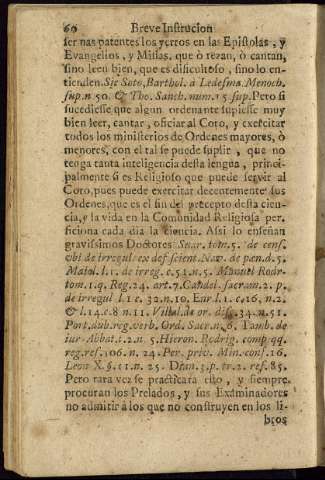 60 Breve Instrucion
ser nas patentes los yerros en las Epistolas, y
Evangelios, y Missas, que ò rezan, ò cantan,
sino leen bien, que es dificultoso, sino lo en-
tienden. Sic Soto, Barthol. à Ledesma. Menoch.
sup. n. 50. & Tho. Sanch. num. 15. sup. Pero si
sucediesse que algun ordenante supiesse muy
bien leer, cantar, oficiar al Coro, y exercitar
todos los ministerios de Ordenes mayores, ò
menores, con el tal se puede suplir, que no
tenga tanta inteligencia desta lengua, princi-
palmente si es Religioso que puede servir al
Coro, pues puede exercitar decentemente sus
Ordenes, que es el fin del precepto desta cien-
cia, y la vida en la Comunidad Religiosa per-
ficiona cada dia la ciencia. Assi lo enseñan
gravissimos Doctores: Suar. tom. 5. de cens.
vbi de irregul. ex def. scient. Nav. de pen. d. 5.
Maiol. l. 1. de irreg. c. 51. n. 5. Manuel Rodr.
tom. 1. q. Reg. 24. art. 7. Candel. sacram. 2. p.
de irregul. l. 1 c. 32. n. 10. Enr. l. 1. c. 16. n. 2.
& l. 14. c. 8 n. 11. Villal. de or. diff. 34. n. 51.
Port. dub. reg. verb. Ord. Sacr. n. 6. Tamb. de
iur. Abbat. t. 2. n. 5. Hieron. Rodrig. comp. qq.
reg. ref. 106. n. 24. Per. priv. Min. conf. 16.
Leon X. §. 11. n. 25. Dian. 3. p. tr. 2. ref. 85.
Pero rara vez se practicara esto, y siempre
procuran los Prelados, y sus Examinadores
no admitir à los que no construyen en los li-
bros